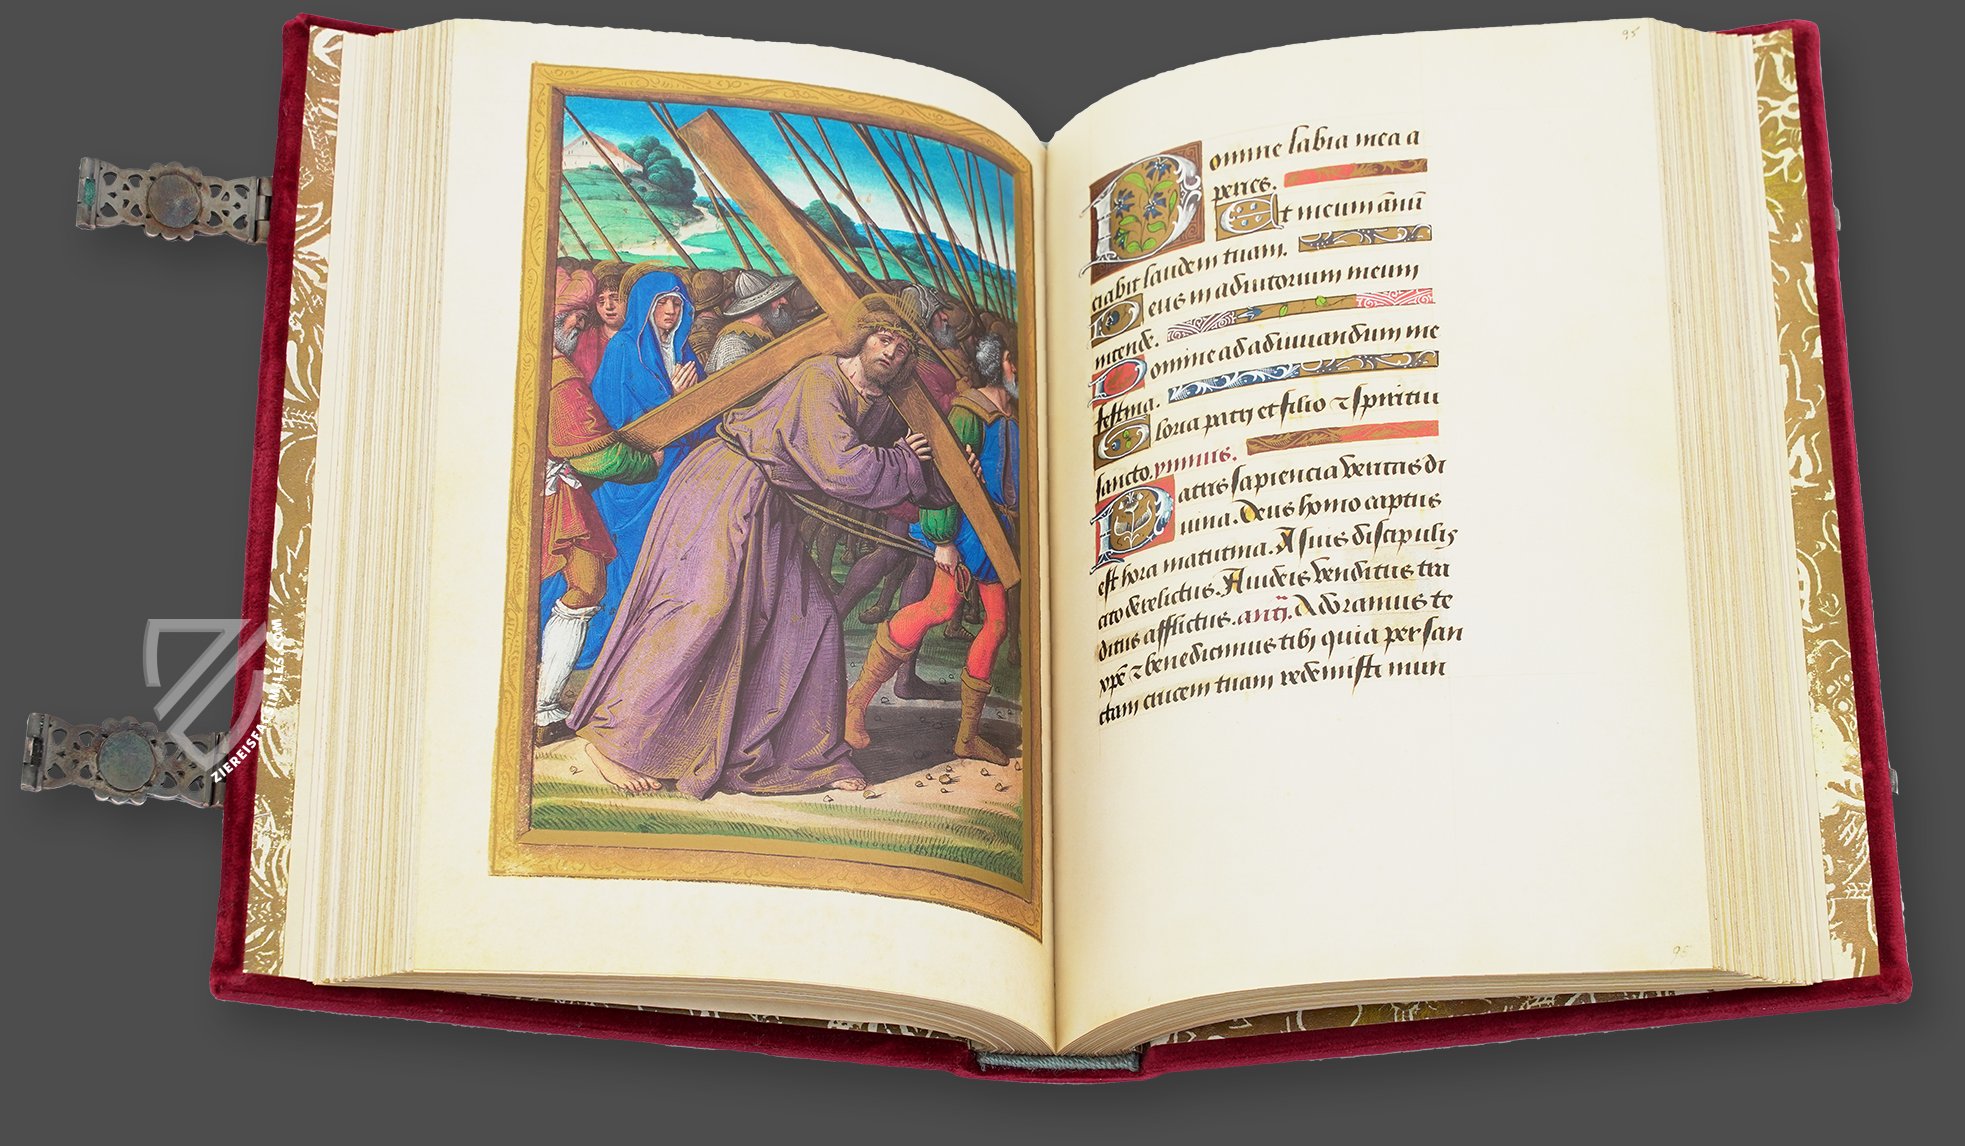 95
Domine labia mea a
peries. Et meum a̅nu̅
ciabit laudem tuam.
Deus in adiutorium meum
intende.
Domine ad adiuuandum me
festina.
Gloria patri et filio ⁊ spiritui
sancto. ymnus.
Patris sapiencia veritas di
uina. Deus homo captus
est hora matutina. A suis discipulis
cito derelictus. A iudeis venditus tra
ditus afflictus. an̅. Adoramus te
xp̅e ⁊ benedicimus tibi quia per san
ctam crucem tuam redemisti mun
95
ZIEREISEN FACSIMILES.COM